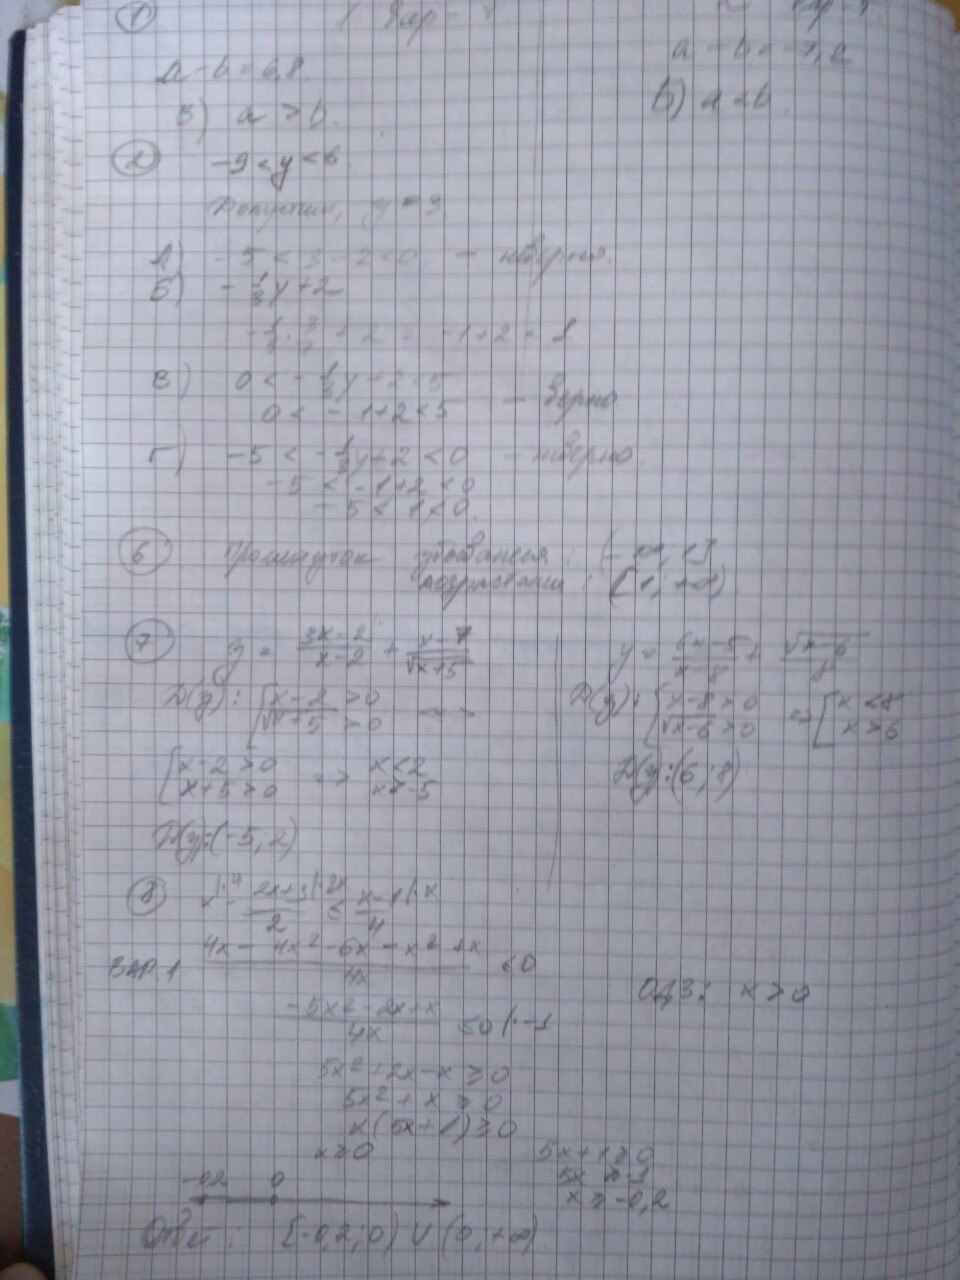 1
a - b = 6,8
a - b = -7,2
В) a > b
Б) a < b
2 -9 < y < 6
Допустим, y = 3
А) -5 < 3 - 2 < 0 - неверно.
Б) -1/3 y + 2
-1/3 · 3 + 2 = -1 + 2 = 1
В) 0 < -1/3 y + 2 < 5
0 < -1 + 2 < 5 - верно
Г) -5 < -1/3 y + 2 < 0 - неверно.
-5 < -1 + 2 < 0
-5 < 1 < 0
6 Промежуток убывания: (-∞; 1]
возрастания: [1; +∞)
7 y = 3x-2/x-2 + x-7/√x+5
D(y): x-2 > 0
√x+5 > 0
x-2 > 0 => x < 2
x+5 > 0 x > -5
D(y):(-5; 2)
√x-6
D(y): x-8 > 0 => x < 8
√x-6 > 0 x > 6
D(y):(6; 8)
8
ВАР.1 4x - 4x² - 6x - x² + x / 4x ≤ 0
ОДЗ: x > 0
-5x² - 2x + x / 4x ≤ 0 | · -1
5x² + 2x - x ≥ 0
5x² + x ≥ 0
x(5x+1) ≥ 0
x ≥ 0
5x+1 ≥ 0
5x ≥ -1
x ≥ -0,2
-0,2 0
Ответ: [-0,2; 0) ∪ (0; +∞)